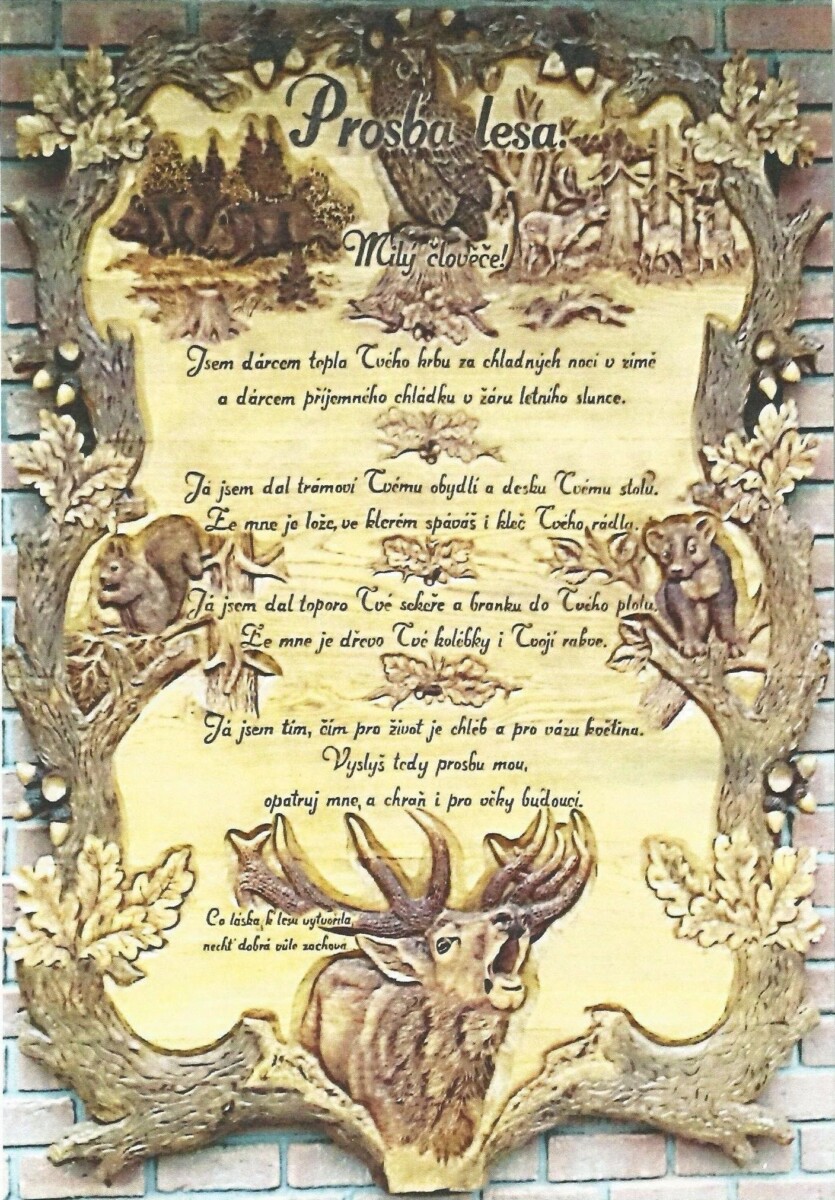 Prosba lesa.
Milý člověče!
Jsem dárcem tepla Tvého krbu za chladných nocí v zimě
a dárcem příjemného chládku v žáru letního slunce.
Já jsem dal trámoví Tvému obydlí a desku Tvému stolu.
Ze mne je lože, ve kterém spáváš i kleč Tvého rádla.
Já jsem dal toporo Tvé sekeře a branku do Tvého plotu.
Ze mne je dřevo Tvé kolébky i Tvojí rakve.
Já jsem tím, čím pro život je chléb a pro vázu květina.
Vyslyš tedy prosbu mou,
opatruj mne, a chraň i pro věky budoucí.
Co láska k lesu vytvořila,
nechť dobrá vůle zachova